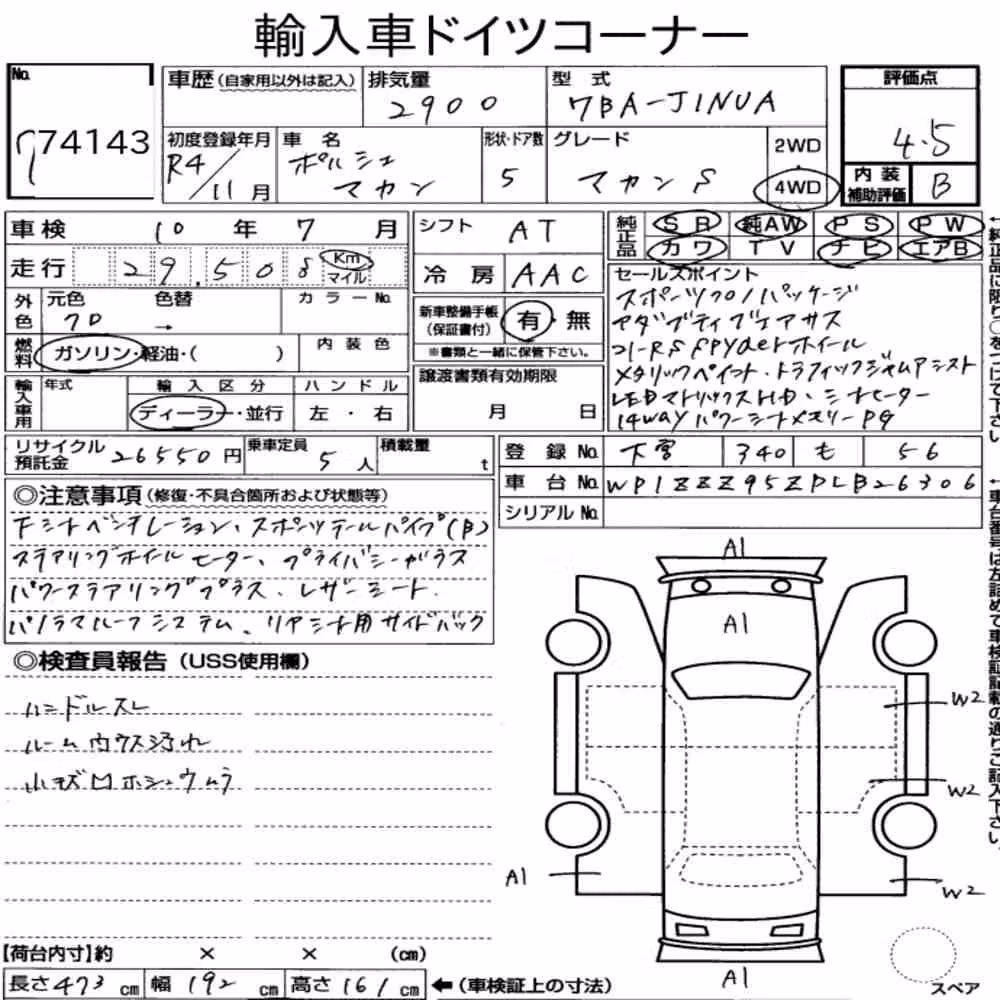 輸入車ドイツコーナー
No. 74143
車歴 (自家用以外は記入)
排気量 2900
型式 7BA-J1NUA
評価点 4.5
内装補助評価 B
初度登録年月 R4/11月
車名 ポルシェ マカン
形状・ドア数 5
グレード マカン S
2WD
4WD
車検 10年 7月
走行 29,508 Km マイル
外色 元色 クロ 色替 → カラーNo.
燃料 ガソリン・軽油・( ) 内装色
輸入車用 年式 輸入区分 ディーラー・並行 ハンドル 左・右
シフト AT
冷房 AAC
新車整備手帳(保証書付) 有・無
※書類と一緒に保管下さい。
譲渡書類有効期限 月 日
純正品 SR 純AW PS PW
カワ TV ナビ エアB
セールスポイント
スポーツクロノパッケージ
アダプティブエアサス
21-RS Spyderホイール
メタリックペイント・トラフィックジャムアシスト
LEDマトリックスHD・シートヒーター
14wayパワーシートメモリーPG
←純正品に限り○をつけて下さい。
リサイクル預託金 26550円
乗車定員 5人
積載量 t
登録No. 340 も 56
車台No. WP1ZZZ95ZPLB26306
シリアルNo.
←車台番号は左詰めで車検証記載の通りご記入下さい。
◎注意事項 (修復・不具合箇所および状態等)
下シートベンチレーション、スポーツテールパイプ(B)
ステアリングホイールヒーター、プライバシーガラス
パワーステアリングプラス、レザーシート、
パノラマルーフシステム、リアシート用サイドバック
◎検査員報告 (USS使用欄)
ハンドルスレ
ルーム内ウス汚れ
小キズ ホシュウムラ
A1
A1
W2
W2
A1
W2
A1
スペア
【荷台内寸】約 × × (cm)
長さ473cm 幅192cm 高さ161cm ←(車検証上の寸法)